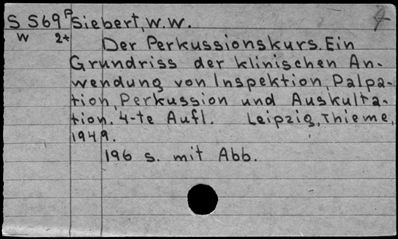 S S69ᴾ Siebert, W.W.
W 2*
Der Perkussionskurs. Ein
Grundriss der klinischen An-
wendung von Inspektion, Palpa-
tion, Perkussion und Auskulta-
tion. 4-te Aufl. Leipzig, Thieme,
1949.
196 s. mit Abb.